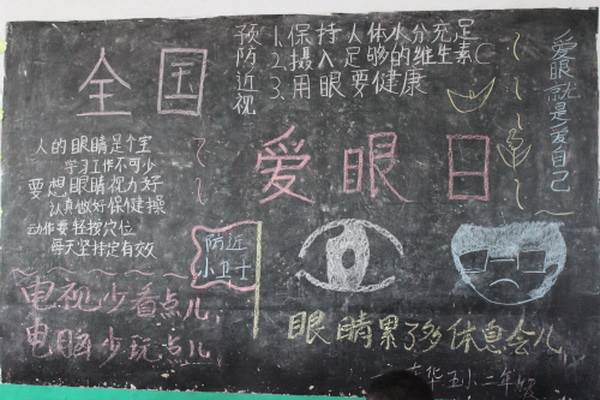 全国
爱眼日
预防近视
1.保持人体水分充足
2.摄入足够的维生素C
3.用眼要健康
爱眼就是爱自己
人的眼睛是个宝
学习工作不可少
要想眼睛视力好
认真做好保健操
动作要轻按穴位
每天坚持定有效
防近
小卫士
电视少看点儿,
电脑少玩点儿
眼睛累了多休息会儿
华玉小二年级